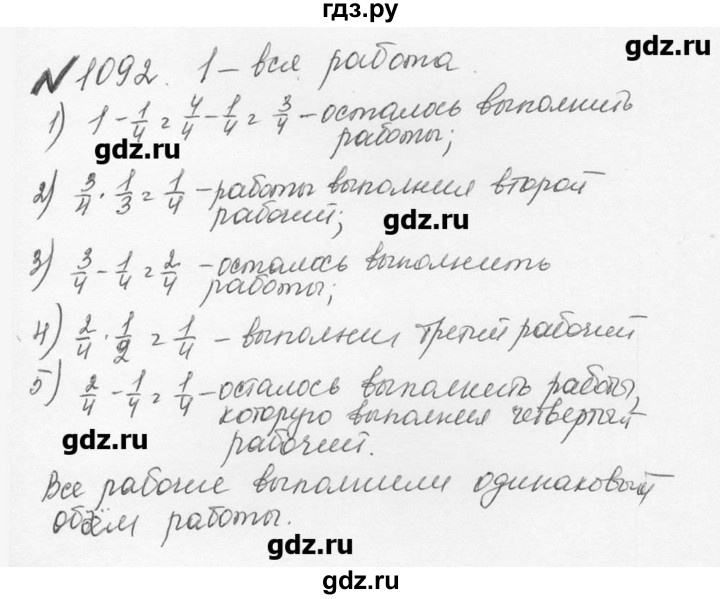 гдз.ру
gdz.ru
№1092. 1 – вся работа.
1) 1 - 1/4 = 4/4 - 1/4 = 3/4 – осталось выполнить
работы;
gdz.ru
2) 3/4 · 1/3 = 1/4 – работы выполнил второй
рабочий;
gdz.ru
3) 3/4 - 1/4 = 2/4 – осталось выполнить
работы;
4) 2/4 · 1/2 = 1/4 – выполнил третий рабочий
5) 2/4 - 1/4 = 1/4 – осталось выполнить работы,
которую выполнил четвертый
gdz.ru
рабочий.
Все рабочие выполнили одинаковый
объём работы.
gdz.ru
gdz.ru